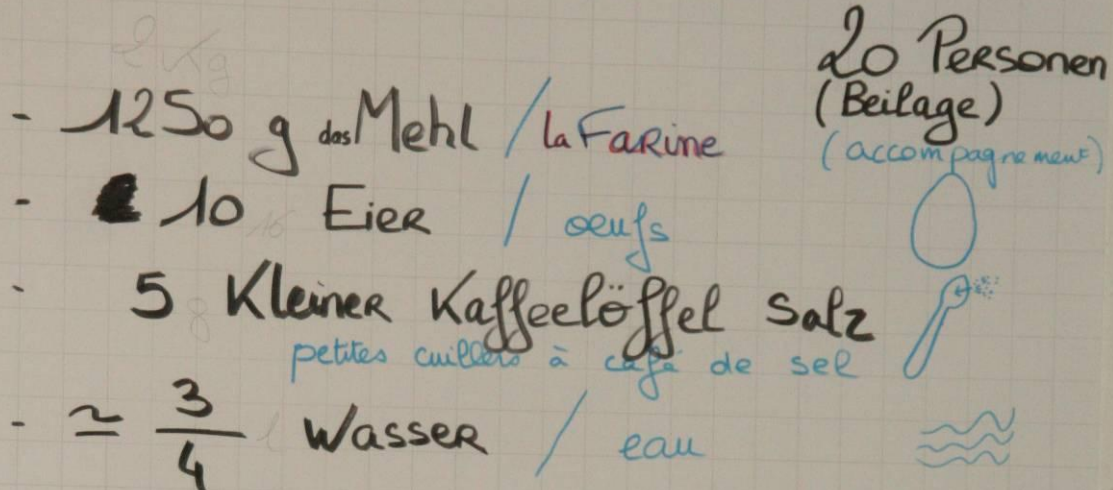 20 Personen
(Beilage)
(accompagnement)
- 1250 g das Mehl / la Farine
- 10 Eier / oeufs
- 5 Kleiner Kaffeelöffel Salz
petites cuillers à café de sel
- ≃ 3/4 l Wasser / eau